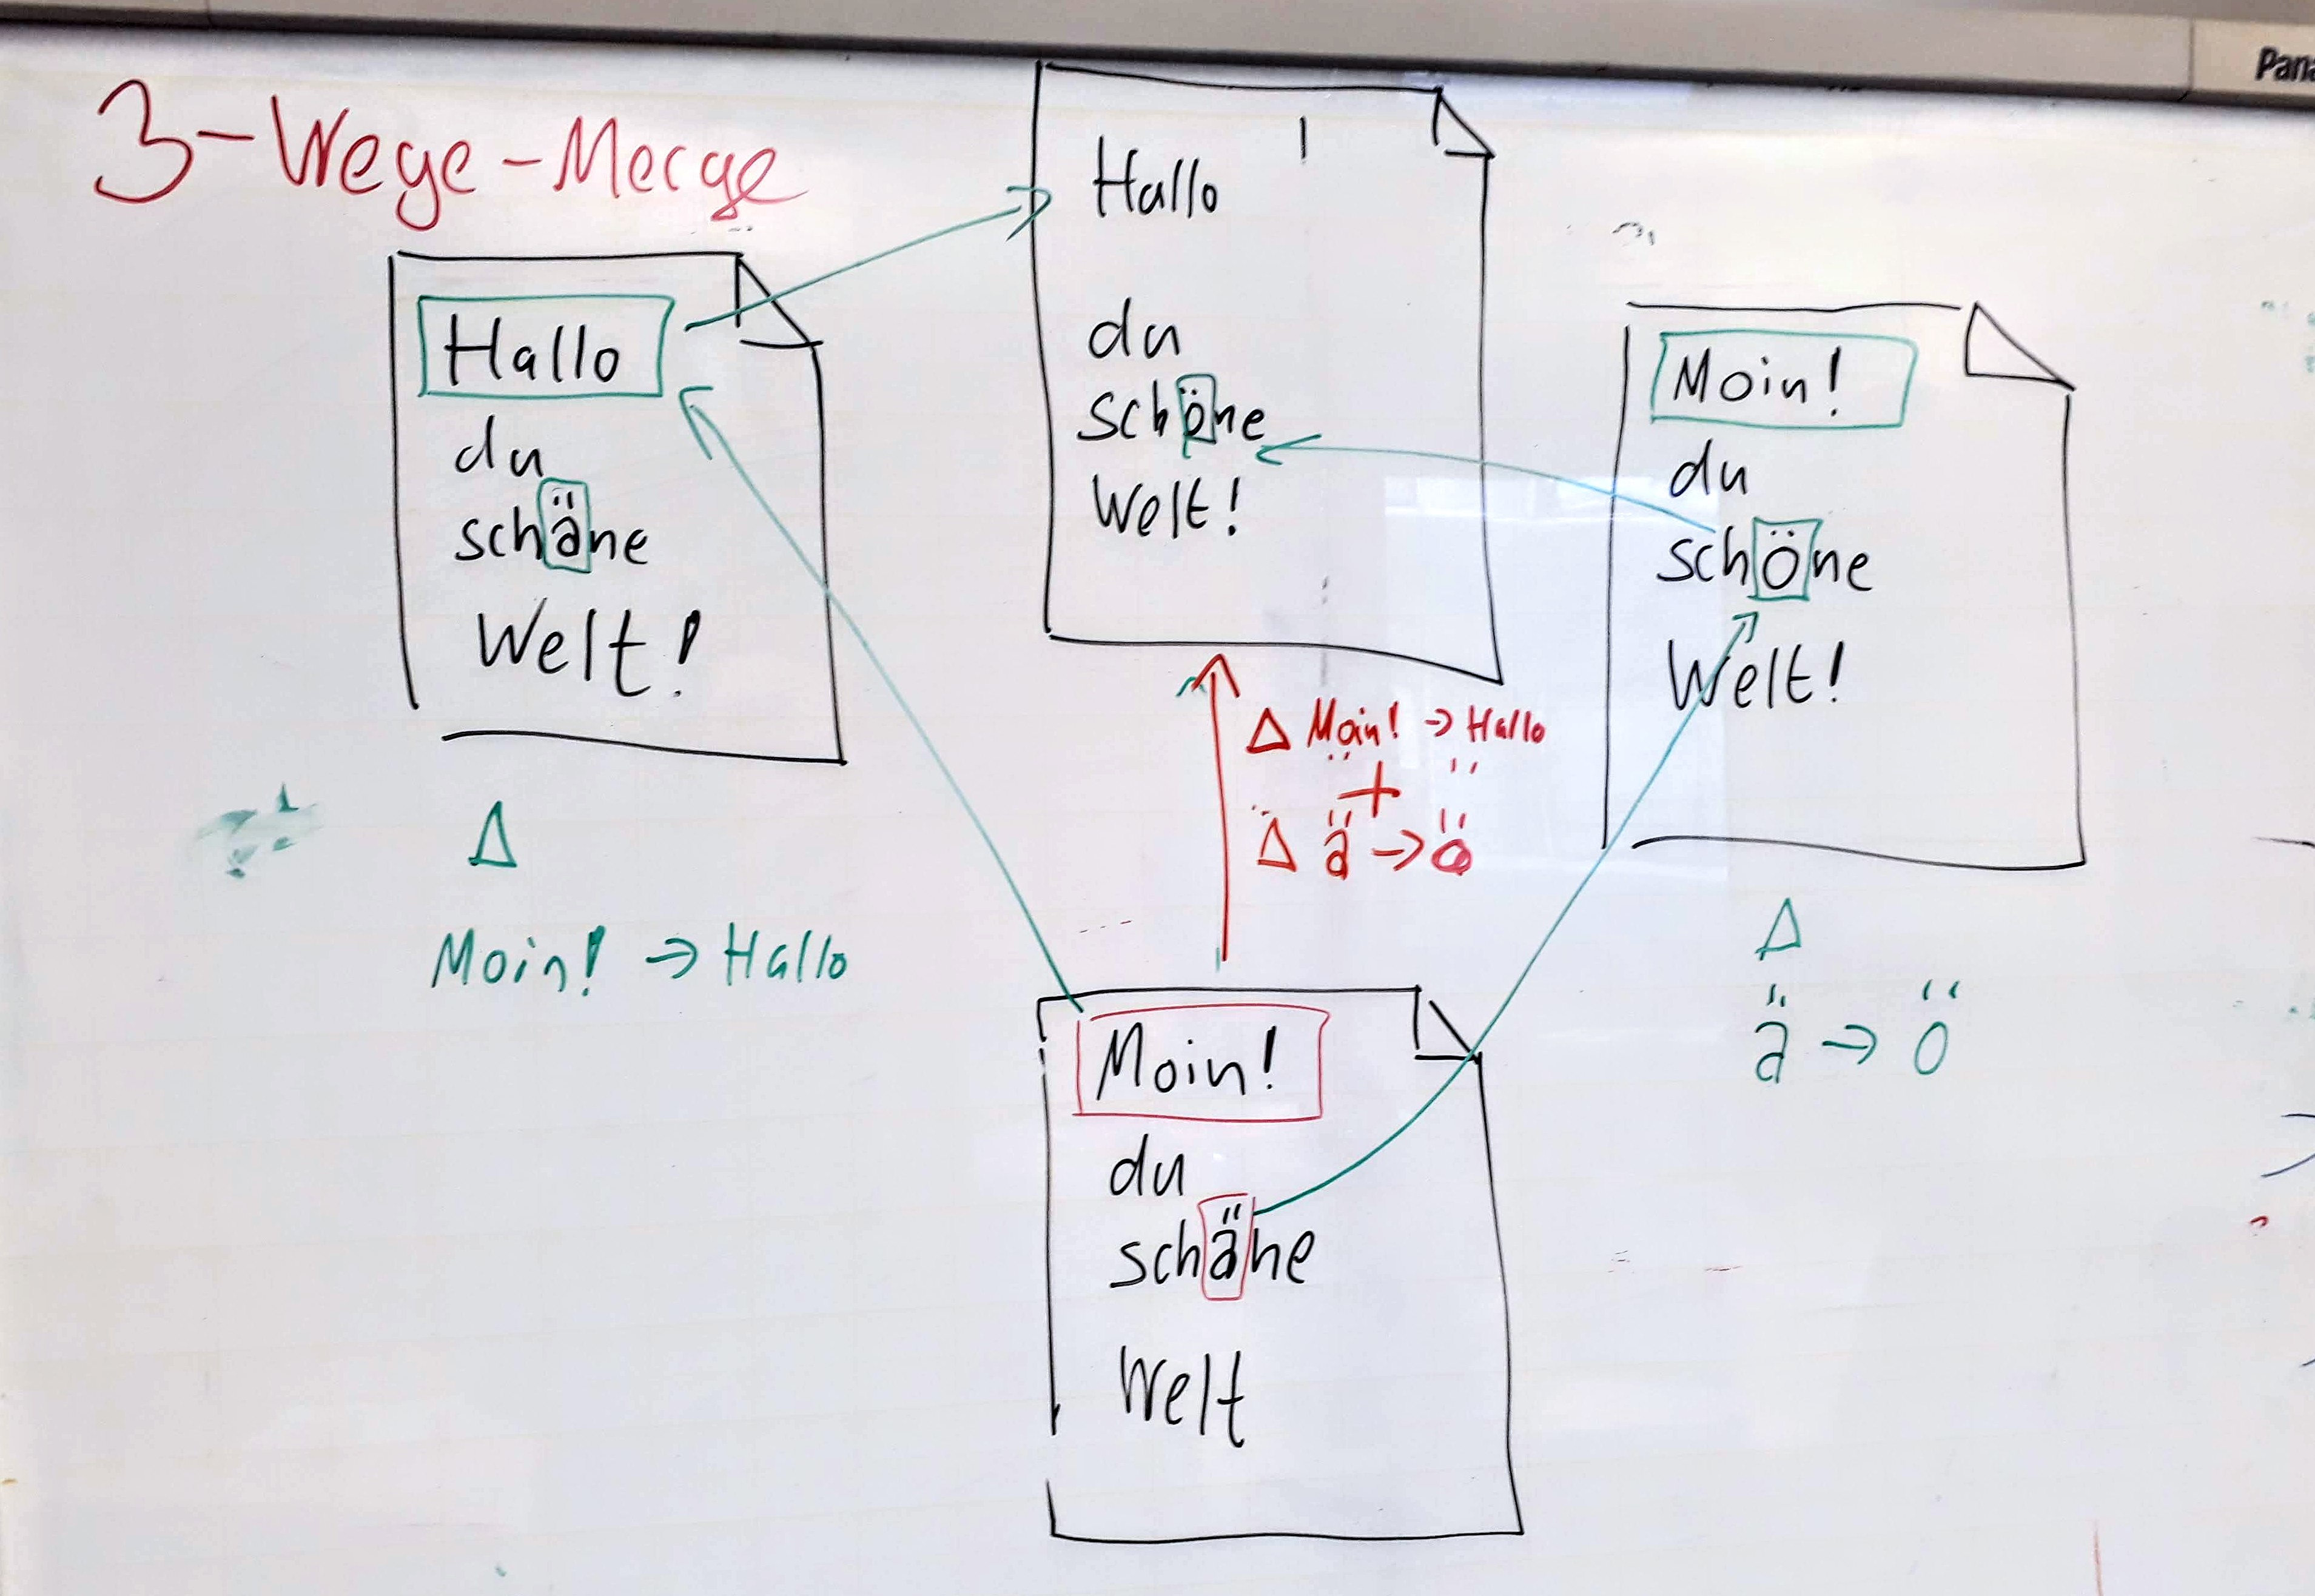 3-Wege-Merge
Hallo
du
schäne
Welt!
Δ
Moin! → Hallo
Hallo
du
schöne
Welt!
Δ Moin! → Hallo
+
Δ ä → ö
Moin!
du
schöne
Welt!
Δ
ä → ö
Moin!
du
schäne
Welt